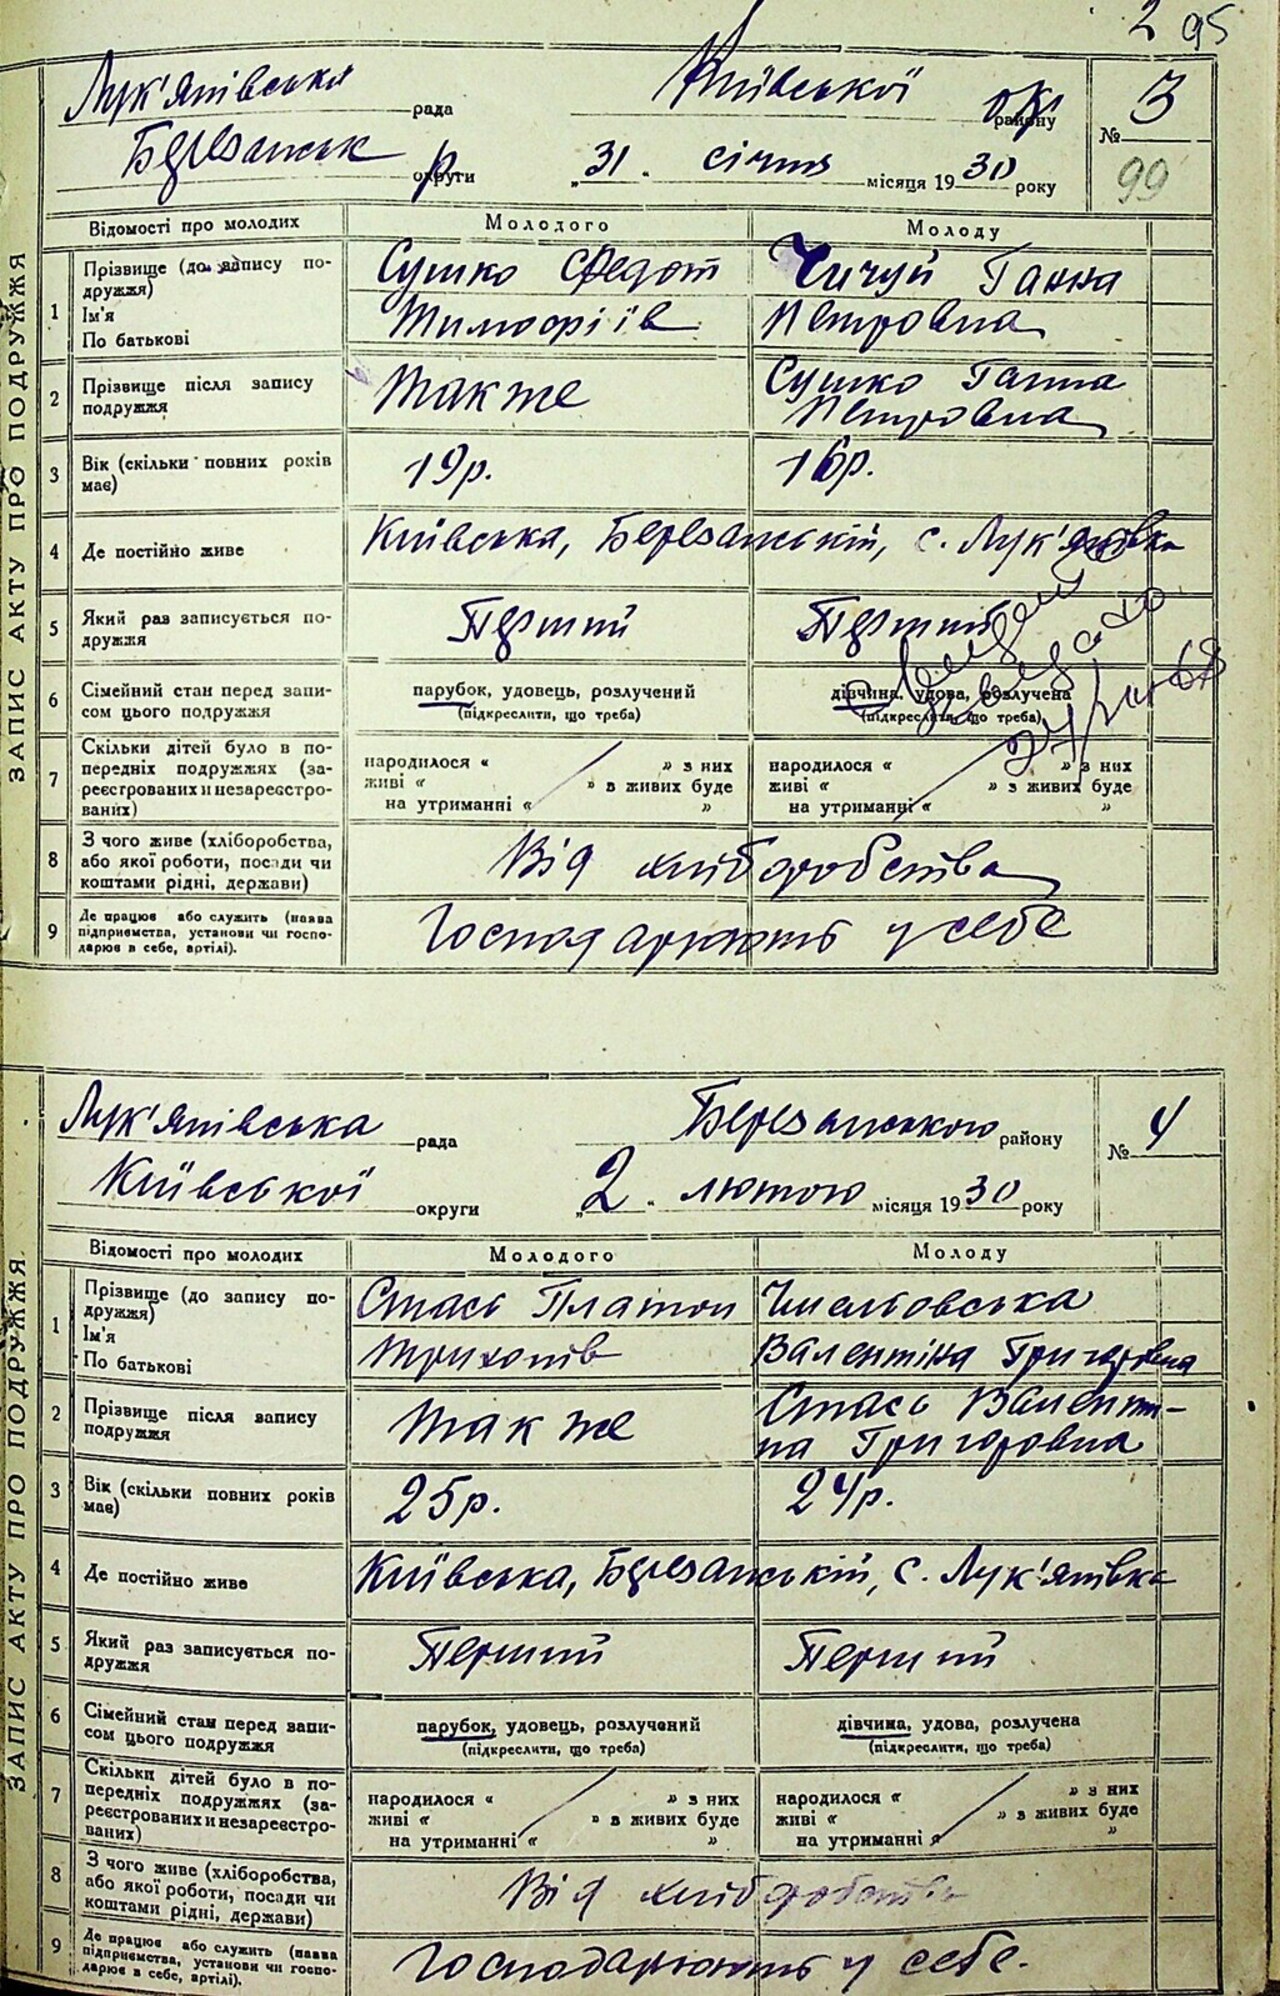 2 95
Лук'янівська рада Київської окр району № 3
Березанськ р округи „31“ січня місяця 1930 року
99
ЗАПИС АКТУ ПРО ПОДРУЖЖЯ
Відомості про молодих Молодого Молоду
1 Прізвище (до запису по-
дружжя)
Ім'я
По батькові
Сушко Федот
Тимофіїв
Чичуй Ганна
Петровна
2 Прізвище після запису
подружжя
Также
Сушко Ганна
Петровна
3 Вік (скільки повних років
має)
19р. 16р.
4 Де постійно живе Київська, Березанській, с. Лук'янівка
5 Який раз записується по-
дружжя
Перший Перший
6 Сімейний стан перед запи-
сом цього подружжя
парубок, удовець, розлучений
(підкреслити, що треба)
дівчина, удова, розлучена
(підкреслити, що треба)
7 Скільки дітей було в по-
передніх подружжях (за-
реєстрованих и незареєстро-
ваних)
народилося « » з них
живі « » в живих буде
на утриманні « »
народилося « » з них
живі « » з живих буде
на утриманні « »
8 З чого живе (хліборобства,
або якої роботи, посади чи
коштами рідні, держави)
Від хліборобства
9 Де працює або служить (назва
підприємства, установи чи госпо-
дарює в себе, артілі).
Господарюють у себе
Лук'янівська рада Березанського району № 4
Київської округи „2“ лютого місяця 1930 року
ЗАПИС АКТУ ПРО ПОДРУЖЖЯ
Відомості про молодих Молодого Молоду
1 Прізвище (до запису по-
дружжя)
Ім'я
По батькові
Стась Платон
Трихонів
Валентіна Григоровна
2 Прізвище після запису
подружжя
Так же
Стась Валенти-
на Григоровна
3 Вік (скільки повних років
має)
25р. 24р.
4 Де постійно живе Київська, Березанській, с. Лук'янівка
5 Який раз записується по-
дружжя
Перший Перший
6 Сімейний стан перед запи-
сом цього подружжя
парубок, удовець, розлучений
(підкреслити, що треба)
дівчина, удова, розлучена
(підкреслити, що треба)
7 Скільки дітей було в по-
передніх подружжях (за-
реєстрованих и незареєстро-
ваних)
народилося « » з них
живі « » в живих буде
на утриманні « »
народилося « » з них
живі « » в живих буде
на утриманні « »
8 З чого живе (хліборобства,
або якої роботи, посади чи
коштами рідні, держави)
Від хліборобства
9 Де працює або служить (назва
підприємства, установи чи госпо-
дарює в себе, артілі).
Господарюють у себе.